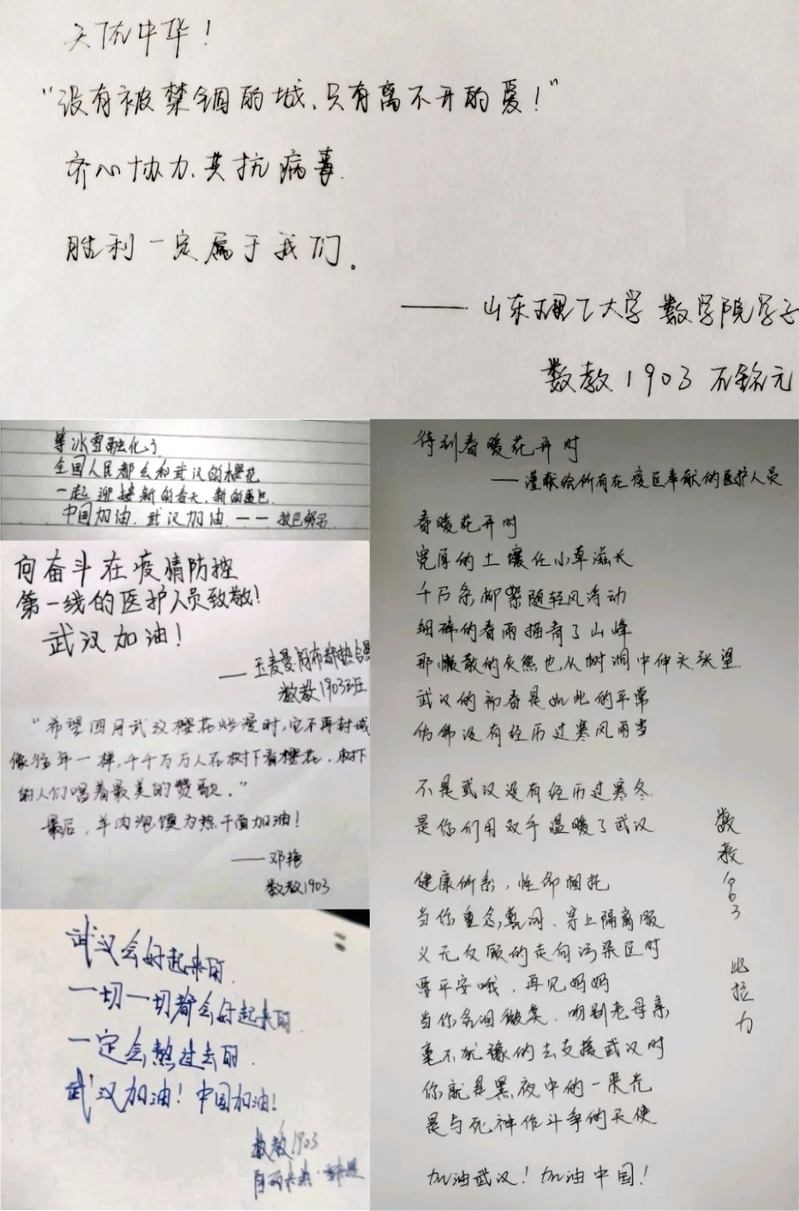 天佑中华！
“没有被禁锢的城，只有离不开的爱！”
齐心协力，共抗病毒．
胜利一定属于我们。
——山东理工大学 数学院学子
数教1903 石铭元
等冰雪融化了
全国人民都会和武汉的樱花
一起迎接新的春天，新的
中国加油．武汉加油 ——
向奋斗在疫情防控
第一线的医护人员致敬！
武汉加油！
数教1903班
“希望四月武汉樱花烂漫时，它不再封城
像往年一样，千千万万人在树下看樱花，树下
的人们唱着最美的赞歌．”
最后，羊肉泡馍为热干面加油！
——邓艳
数教1903
武汉会好起来的．
一切一切都会好起来的．
一定会熬过去的．
武汉加油！中国加油！
数教1903
待到春暖花开时
——谨献给所有在疫区奉献的医护人员
春暖花开时
宽厚的土壤任小草滋长
千万条柳絮随轻风浮动
细碎的春雨描青了山峰
那懒散的灰熊也从树洞中伸头张望
武汉的初春是如此的平常
仿佛没有经历过寒风雨雪
不是武汉没有经历过寒冬
是你们用双手温暖了武汉
健康所系，性命相托
当你重念誓词．穿上隔离服
义无反顾的走向污染区时
要平安哦，再见妈妈
当你含泪微笑．吻别老母亲
毫不犹豫的去支援武汉时
你就是黑夜中的一束光
是与死神作斗争的天使
加油武汉！加油中国！
数教1903 比拉力